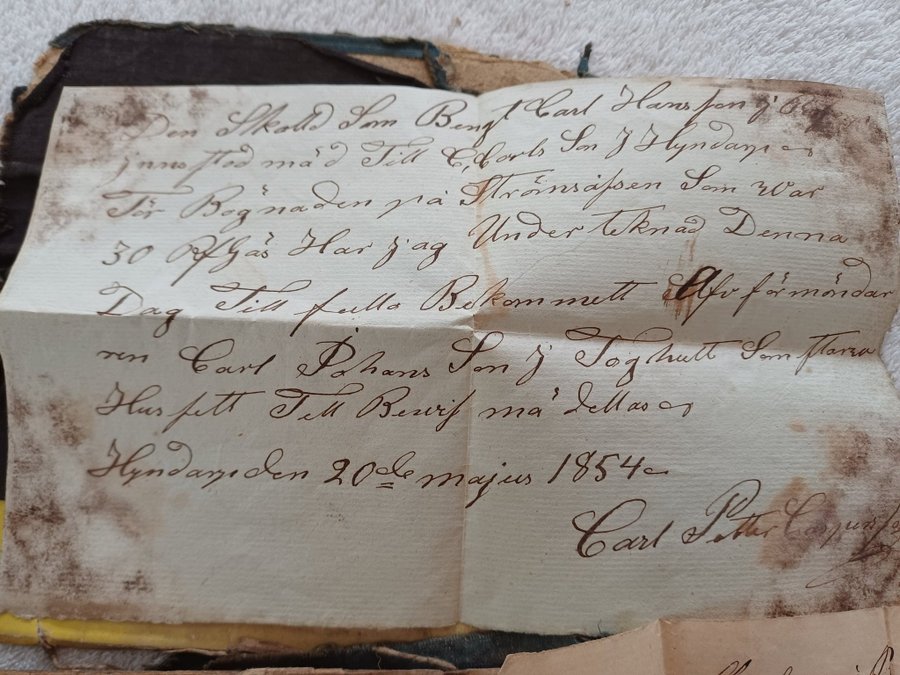 Den Skolld Som Bengt Carl Hansson j
jnne stod mäd Till C, Carls Son J Hyndarp
För Bygnaden på Som war
30 Har jag Under teknad Denna
Dag Till fullo Bekommett Af förmöndar
ren Carl Johans Son J Toghult Som
Hus fett Till Bewis mä dellas
Hyndarp den 20de majus 1854
Carl Petter